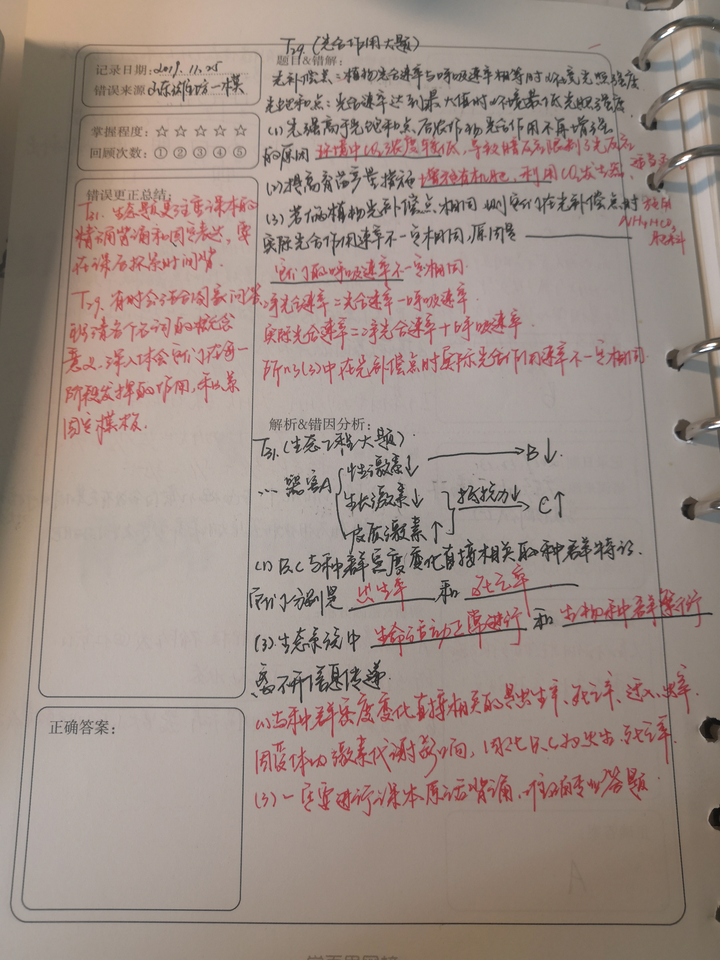 T29.(光合作用大题)
记录日期: 2019.11.25
错误来源: 山东潍坊一模
掌握程度: ☆ ☆ ☆ ☆ ☆
回顾次数: ① ② ③ ④ ⑤
错误更正总结:
T31. 生态题是注重课本的
精确背诵和固定表达,要
在课后抓紧时间背.
T29. 有时会结合国家问答
明清各个名词的概念含
意义,深入体会它们在每一
阶段发挥的作用,
固定模板.
正确答案:
题目&错解:
光补偿点:植物光合速率与呼吸速率相等时环境光照强度
光饱和点:光合速率达到最大值时环境最低光照强度
(1)光强高于光饱和点后农作物光合作用不再增强
的原因 环境中CO₂浓度较低,导致暗反应限制了光反应
(2)提高有苗产量措施 增施有机肥,利用CO₂发生器,适当
施用
NH₄HCO₃
肥料
(3)若两植物光补偿点相同,则它们在光补偿点时
实际光合作用速率不一定相同,原因是
它们的呼吸速率不一定相同
净光合速率=光合速率-呼吸速率.
实际光合速率=净光合速率+呼吸速率
所以(3)中在光补偿点时实际光合作用速率不一定相同.
解析&错因分析:
T31.(生态工程大题)
∴ 器官A 性激素↓ → B↓.
生长激素↓ 抵抗力↓ → C↑
皮质激素↑
(1)B、C与种群密度变化直接相关的种群特征.
它们分别是 出生率 和 死亡率
(3)生态系统中 生命活动正常进行 和 生物种群繁衍
离不开信息传递
(1)与种群密度变化直接相关的是出生率、死亡率、迁入、出率.
因受体内激素代谢影响,因此B、C为出生、死亡率.
(3)一定要进行课本原话背诵,准确专业答题.